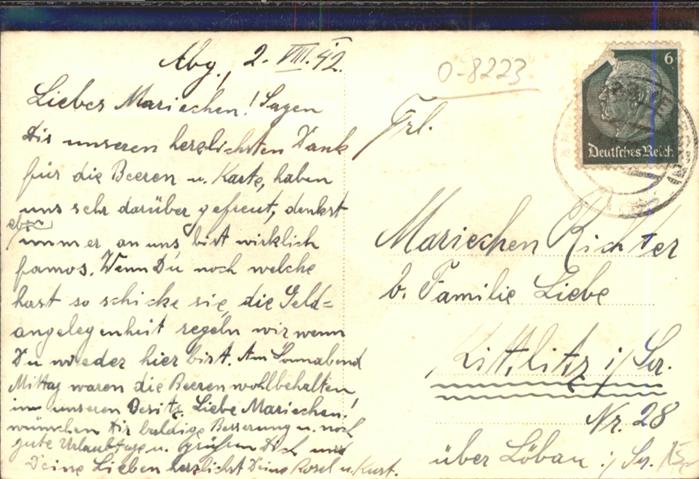 Abg., 2. VIII. 42.
Liebes Mariechen! Sagen
Dir unseren herzlichsten Dank
für die Beeren u. Karte, haben
uns sehr darüber gefreut, denkst
eben
immer an uns bist wirklich
famos. Wenn Du noch welche
hast so schicke sie, die Geld=
angelegenheit regeln wir wenn
Du wieder hier bist. Am Sonnabend
Mittag waren die Beeren wohlbehalten
in unseren Besitz. Liebe Mariechen!
wünschen Dir baldige Besserung u. noch
gute Urlaubstage u. grüßen Dich und
Deine Lieben herzlichst Deine Rosel u. Kurt.
0-8223
6
Deutsches Reich
Frl.
Mariechen Richter
b. Familie Liebe
Kittlitz i/Sa.
Nr. 28
über Löbau i/Sa.